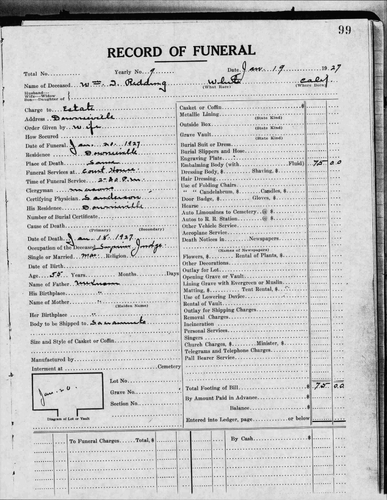 99
RECORD OF FUNERAL
Total No. Yearly No. 9 Date Jan. 19 1927
Name of Deceased Wm. I. Redding White Calif.
Husband— Wife—Widow Son—Daughter of (What Race) (Where Born)
Charge to Estate
Address Downieville
Order Given by Wife
How Secured
Date of Funeral Jan. 20. 1927
Residence Downieville
Place of Death Same
Funeral Services at Court House
Time of Funeral Service 2-30 P.M.
Clergyman Masons
Certifying Physician Sanderson
His Residence Downieville
Number of Burial Certificate
Cause of Death
(Primary) (Secondary)
Date of Death Jan. 18. 1927
Occupation of the Deceased Superior Judge
Single or Married Mar. Religion
Date of Birth
Age 55 Years Months Days
Name of Father
His Birthplace
Name of Mother
(Maiden Name)
Her Birthplace
Body to be Shipped to Sacramento
Size and Style of Casket or Coffin
Manufactured by
Interment at Cemetery
Lot No.
Grave No.
Section No.
Jan. 20.
Diagram of Lot or Vault
Casket or Coffin
Metallic Lining
(State Kind)
Outside Box
(State Kind)
Grave Vault
(State Kind)
Burial Suit or Dress
Burial Slippers and Hose
Engraving Plate
Embalming Body (with Fluid) 75 00
Dressing Body, $ Shaving, $
Hair Dressing
Use of Folding Chairs
" " Candelabrum, $ Candles, $
Door Badge, $ Gloves, $
Hearse
Auto Limousines to Cemetery @ $
Autos to R. R. Station @ $
Other Vehicle Service
Aeroplane Service
Death Notices in Newspapers
(Names of Newspapers)
Flowers, $ Rental of Plants, $
Other Decorations
Outlay for Lot
Opening Grave or Vault
Lining Grave with Evergreen or Muslin
Matting, $ Tent Rental, $
Use of Lowering Device
Rental of Vault
Outlay for Shipping Charges
Removal Charges
Incineration
Personal Services
Singers
Church Charges, $ Minister, $
Telegrams and Telephone Charges
Pall Bearer Service
Total Footing of Bill $ 75 00
By Amount Paid in Advance
Balance $
Entered into Ledger, page or below
To Funeral Charges Total, $ By Cash $